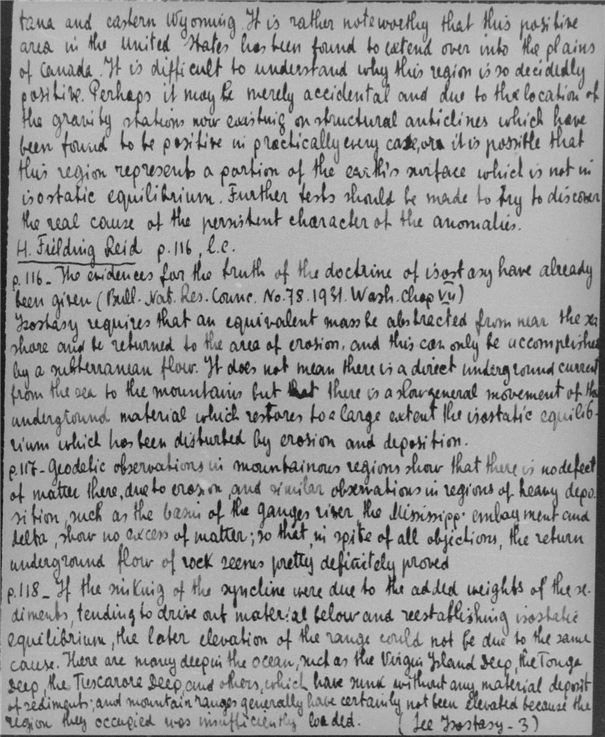 tana and eastern Wyoming It is rather noteworthy that this positive
area in the United States has been found to extend over into the plains
of Canada. It is difficult to understand why this region is so decidedly
positive. Perhaps it may be merely accidental and due to the location of
the gravity stations now existing on structural anticlines which have
been found to be positive in practically every case, or it is possible that
this region represents a portion of the earth's surface which is not in
isostatic equilibrium. Further tests should be made to try to discover
the real cause of the persistent character of the anomalies.
H. Fielding Reid p. 116, l.c.
p. 116 _ The evidences for the truth of the doctrine of isostasy have already
been given (Bull. Nat. Res. Counc. No. 78. 1931. Wash. Chap VII)
Isostasy requires that an equivalent mass be abstracted from near the sea
shore and be returned to the area of erosion, and this can only be accomplished
by a subterranean flow. It does not mean there is a direct underground current
from the sea to the mountains but that there is a slow general movement of the
underground material which restores to a large extent the isostatic equilib-
rium which has been disturbed by erosion and deposition.
p. 117 - Geodetic observations in mountainous regions show that there is no defect
of matter there, due to erosion, and similar observations in regions of heavy depo
sition, such as the basin of the Ganges river, the Mississipp. embayment and
delta, show no excess of matter; so that, in spite of all objections, the return
underground flow of rock seems pretty definitely proved
p. 118 _ If the sinking of the syncline were due to the added weights of the se-
diments, tending to drive out material below and reestablishing isostatic
equilibrium, the later elevation of the range could not be due to the same
cause. There are many deeps in the ocean, such as the Virgin Island Deep, the Tonga
Deep, the Tuscarora Deep, and others, which have sunk without any material deposit
of sediments; and mountain ranges generally have certainly not been elevated because the
region they occupied was insufficiently loaded. (See Isostasy - 3)